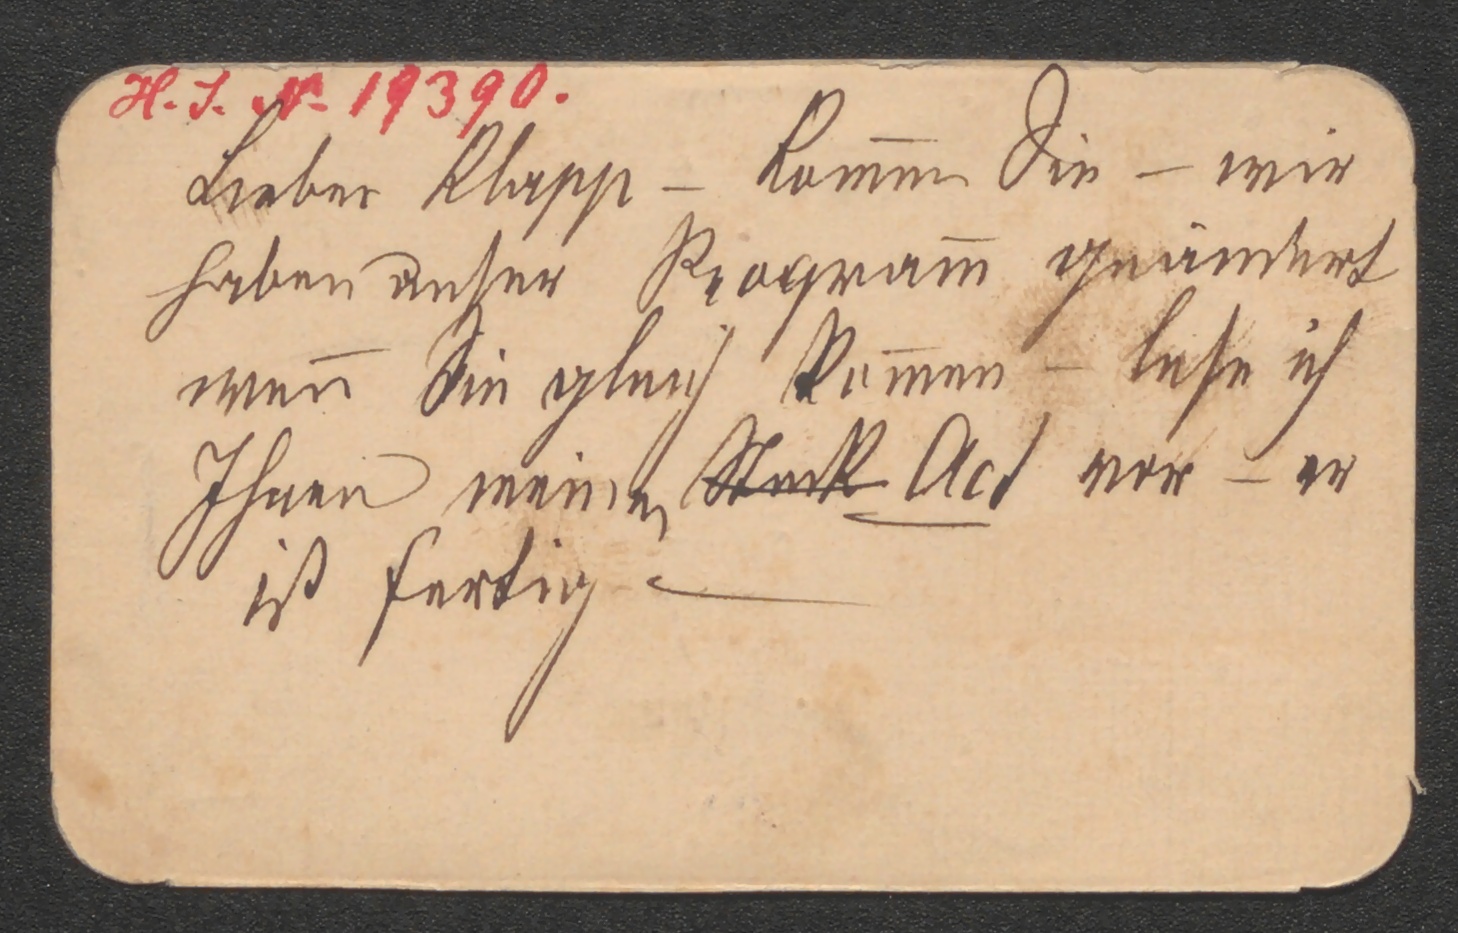 H. I. N. 19390.
Lieber Klapp – kom̅en Sie – wir
haben unser Program̅ geändert
wen̅ Sie gleich kom̅en – lese ich
Ihnen meinen Stück Act vor – er
ist fertig –